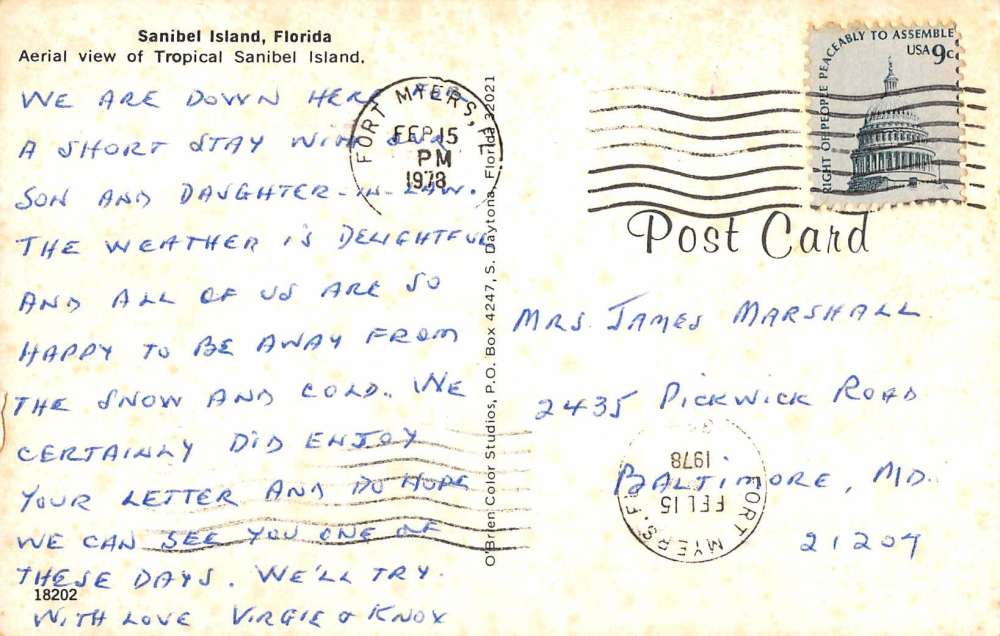 Sanibel Island, Florida
Aerial view of Tropical Sanibel Island.
WE ARE DOWN HERE FOR
A SHORT STAY WITH OUR
SON AND DAUGHTER-IN-LAW.
THE WEATHER IS DELIGHTFUL
AND ALL OF US ARE SO
HAPPY TO BE AWAY FROM
THE SNOW AND COLD. WE
CERTAINLY DID ENJOY
YOUR LETTER AND DO HOPE
WE CAN SEE YOU ONE OF
THESE DAYS. WE'LL TRY.
18202
WITH LOVE VIRGIE & KNOX
FORT MYERS,
FEB 15
PM
1978
O'Brien Color Studios, P.O. Box 4247, S. Daytona, Florida 32021
RIGHT OF PEOPLE PEACEABLY TO ASSEMBLE
USA 9c
Post Card
MRS. JAMES MARSHALL
2435 PICKWICK ROAD
BALTIMORE, MD.
21207
FORT MYERS, F
FEB 15
1978